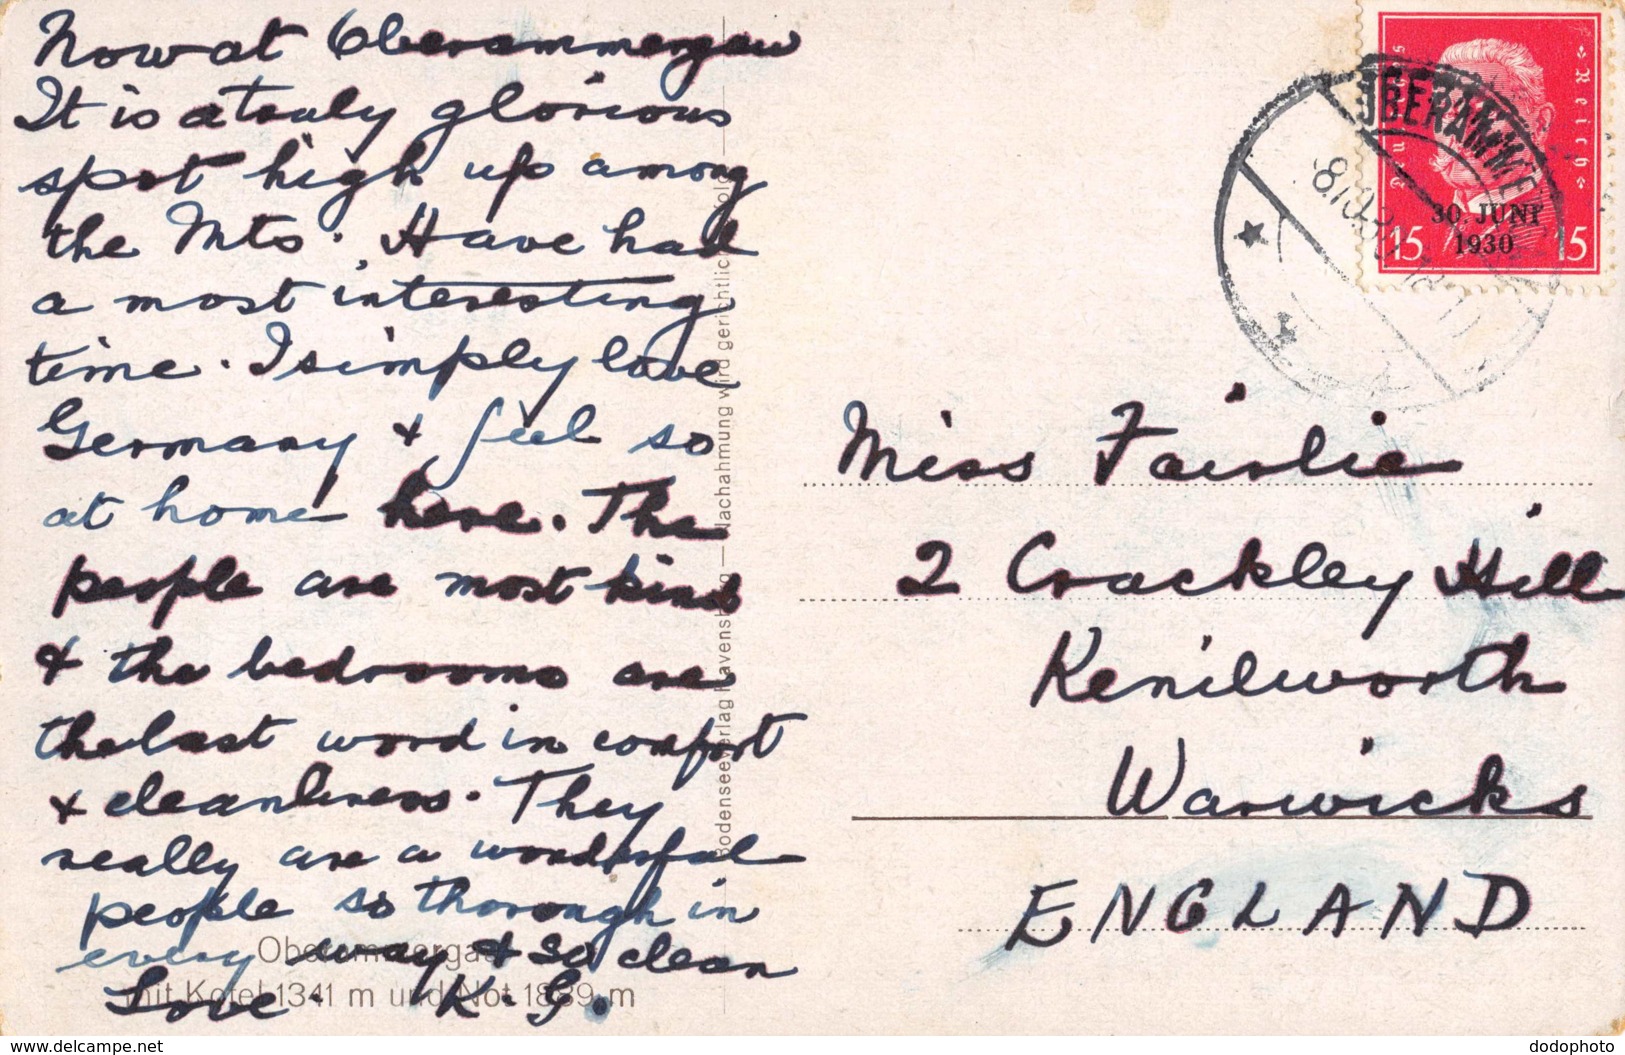 Now at Oberammergau
It is a truly glorious
spot high up among
the Mts. Have had
a most interesting
time. I simply love
Germany & feel so
at home here. The
people are most kind
& the bedrooms are
the last word in comfort
& cleanliness. They
really are a wonderful
people so thorough in
every way & so clean
Love. K. G.
Oberammergau
mit Kofel 1341 m und Not 1889 m
Bodenseeverlag Ravensburg — Nachahmung wird gerichtlich verfolgt
Deutsches Reich
30. JUNI
1930
15 15
OBERAMMERGAU
8.10.30
Miss Fairlie
2 Crackley Hill
Kenilworth
Warwicks
ENGLAND
www.delcampe.net
dodophoto